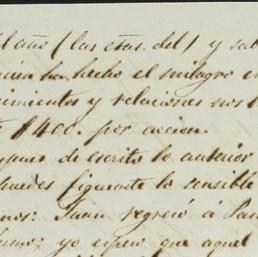 el año (las etas. del) y sal
quien ha hecho el milagro en
cimientos y relaciones nos
$400. por accion.
de escrito lo anterior
puedes figurarte lo sensible
Juan regresó á San
yo espero que aquel